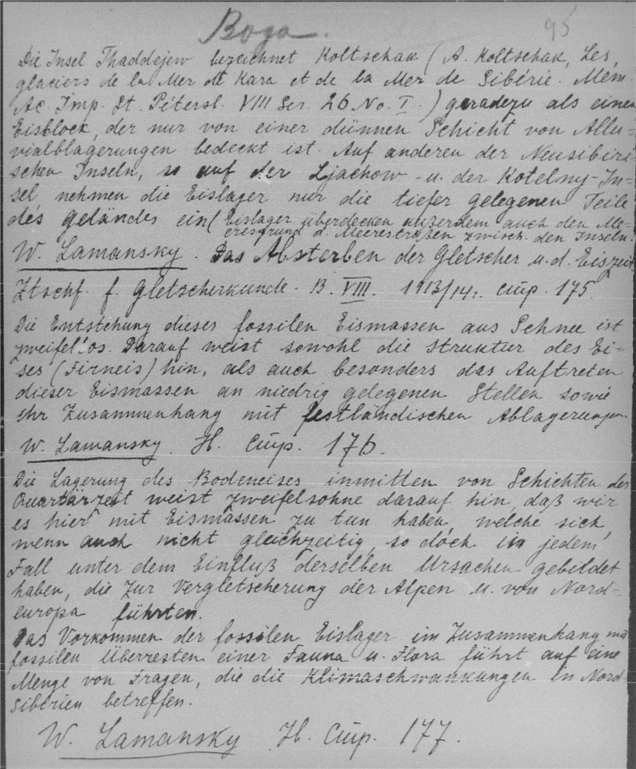 Вода.
95
Die Insel Thaddejew bezeichnet Koltschak (A. Koltschak, Les
glaciers de la Mer de Kara et de la Mer de Sibérie. Mém.
Ac. Imp. St. Pétersb. VIII Ser. 26 No. I.) geradezu als einen
Eisblock, der nur von einer dünnen Schicht von Allu-
vialblagerungen bedeckt ist. Auf anderen der Neusibiri-
schen Inseln, so auf der Ljachow- u. der Kotelny-In-
sel, nehmen die Eislager nur die tiefer gelegenen Teile
des Geländes ein (Eislager überdecken außerdem auch den Me-
eresgrund d. Meerestraßen zwisch. den Inseln.
W. Lamansky. Das Absterben der Gletscher u. d. Eiszeit
Ztschf. f. Gletscherkunde. B. VIII. 1913/14. стр. 175.
Die Entstehung dieser fossilen Eismassen aus Schnee ist
zweifellos. Darauf weist sowohl die Struktur des Ei-
ses (Firneis) hin, als auch besonders das Auftreten
dieser Eismassen an niedrig gelegenen Stellen sowie
ihr Zusammenhang mit festländischen Ablagerungen.
W. Lamansky. Н. стр. 176.
Die Lagerung des Bodeneises inmitten von Schichten der
Quartärzeit weist zweifelsohne darauf hin, daß wir
es hier mit Eismassen zu tun haben, welche sich,
wenn auch nicht gleichzeitig, so doch in jedem
Fall unter dem Einfluß derselben Ursachen gebildet
haben, die zur Vergletscherung der Alpen u. von Nord-
europa führten.
Das Vorkommen der fossilen Eislager im Zusammenhang mit
fossilen Überresten einer Fauna u. Flora führt auf eine
Menge von Fragen, die die Klimaschwankungen in Nord-
sibirien betreffen.
W. Lamansky Н. стр. 177.